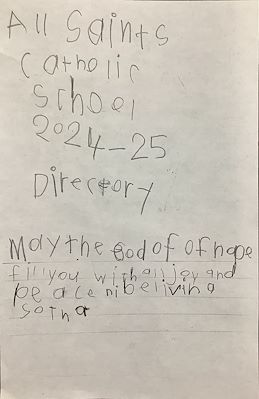 All Saints
Catholic
School
2024-25
Directory
May the God of of hope
fill you with all joy and
peace ni beliving
so tha